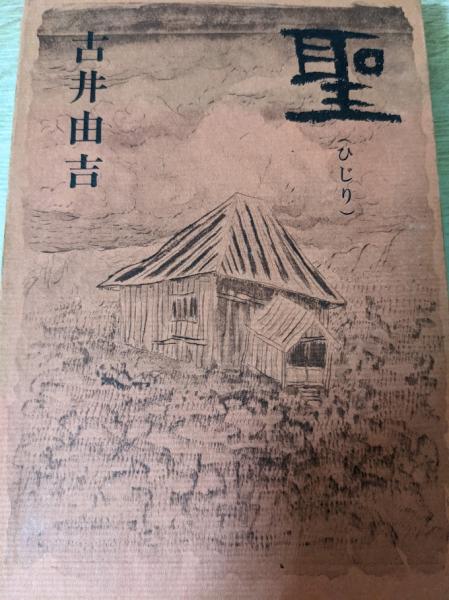 聖
(ひじり)
古井由吉